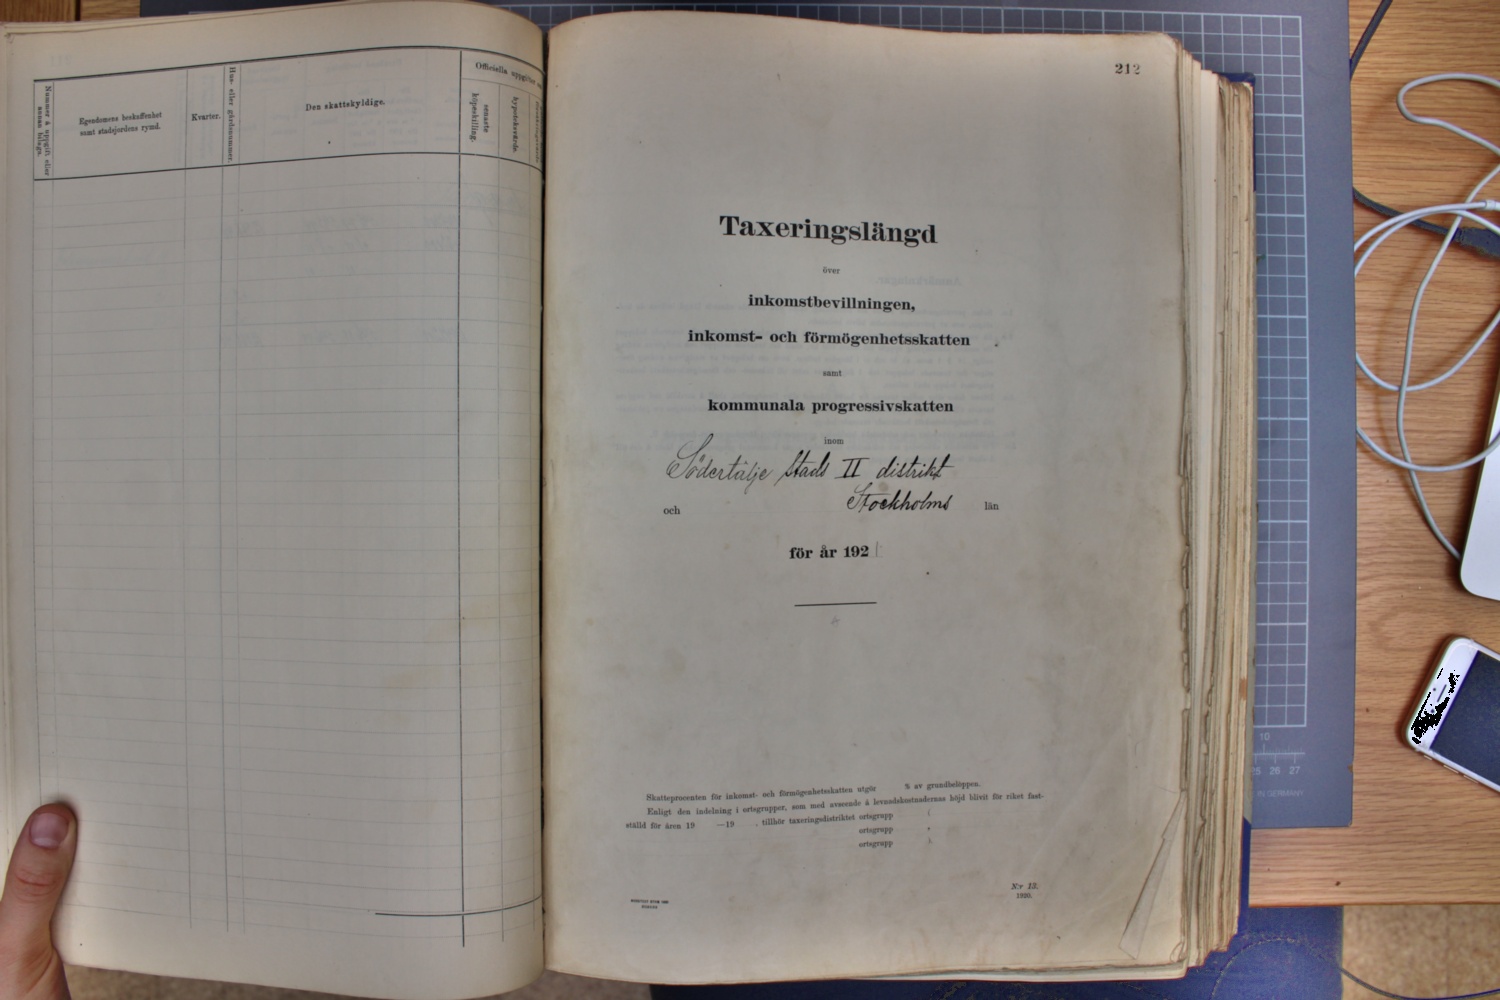 Nummer å uppgift eller annan bilaga.
Egendomens beskaffenhet
samt stadsjordens rymd.
Kvarter.
Hus- eller gårdsnummer.
Den skattskyldige.
Officiella uppgifter
senaste köpeskilling.
hypoteksvärde.
212
Taxeringslängd
över
inkomstbevillningen,
inkomst- och förmögenhetsskatten
samt
kommunala progressivskatten
inom
Södertälje stads II distrikt
och Stockholms län
för år 1921
Skatteprocenten för inkomst- och förmögenhetsskatten utgör % av grundbeloppen.
Enligt den indelning i ortsgrupper, som med avseende å levnadskostnadernas höjd blivit för riket fast-
ställd för åren 19 —19 , tillhör taxeringsdistriktet ortsgrupp
ortsgrupp
ortsgrupp
N:r 12.
1920.
10
25 26 27
IN GERMANY